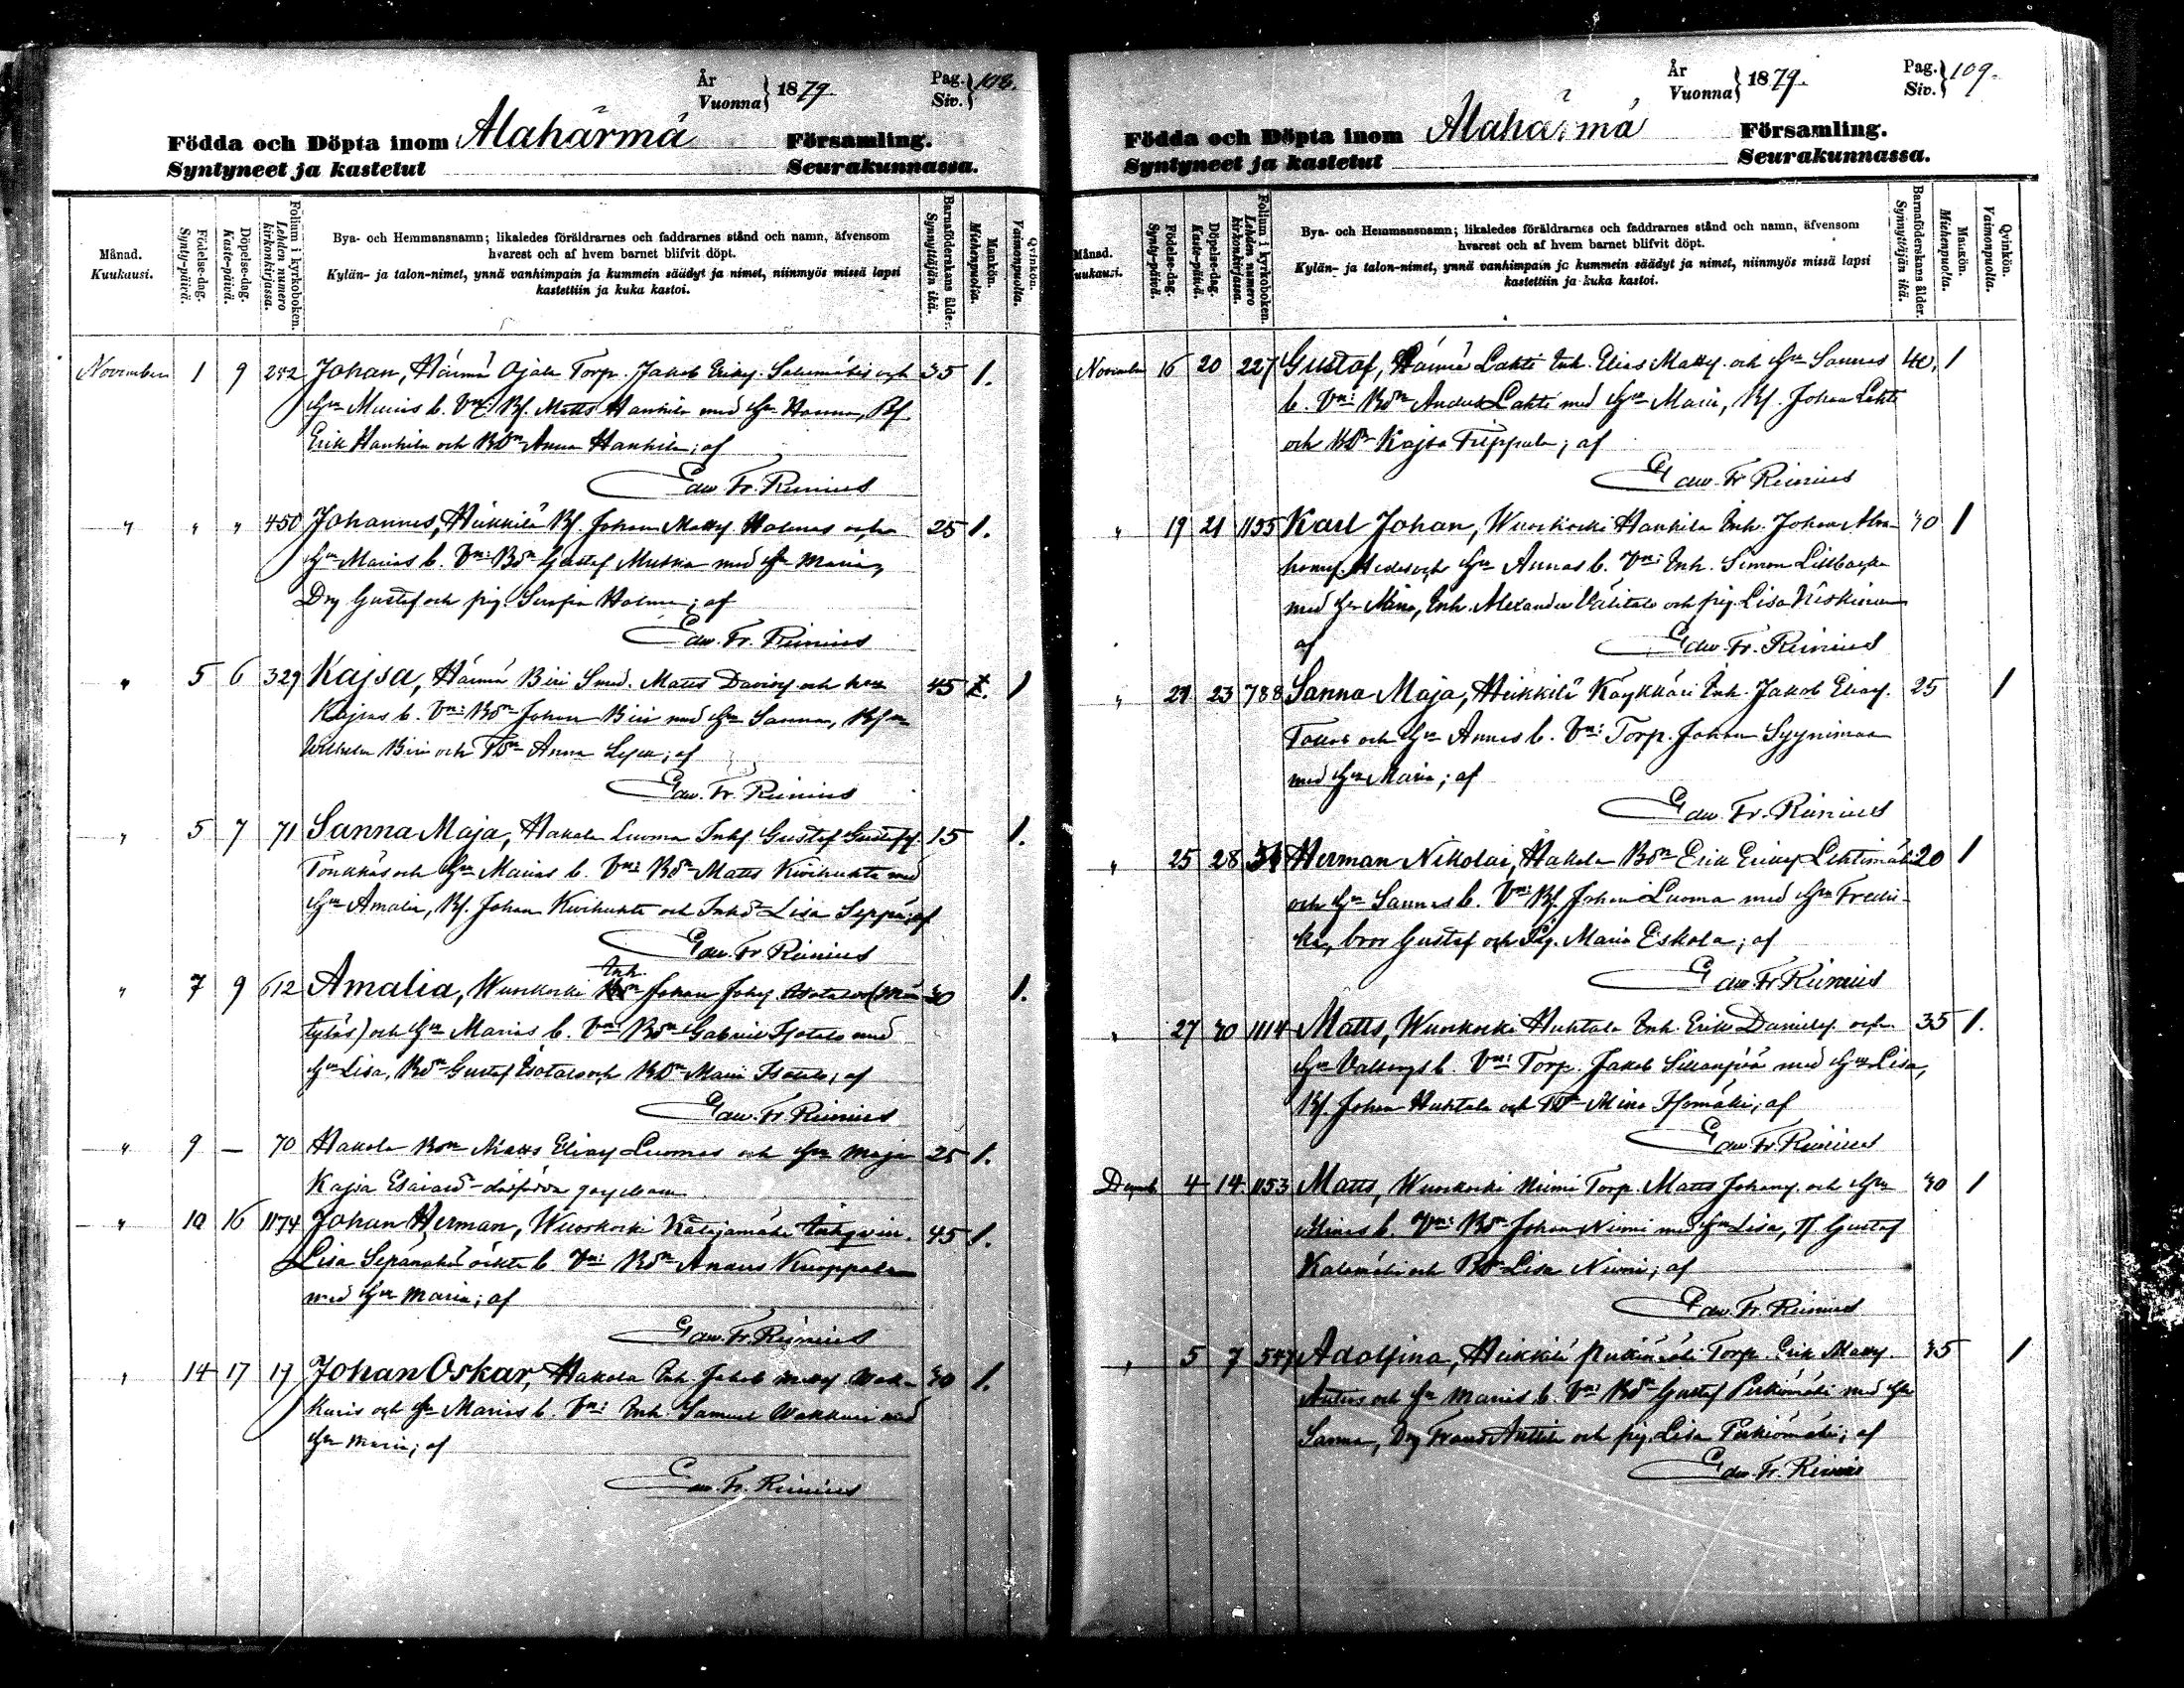 År
Vuonna } 1879. Pag.
Siv. } 108.
Födda och Döpta inom Alahärmä Församling.
Syntyneet ja kastetut Seurakunnassa.
Månad.
Kuukausi.
Födelse-dag.
Synty-päivä.
Döpelse-dag.
Kaste-päivä.
Folium i kyrkoboken.
Lehden numero
kirkonkirjassa.
Bya- och Hemmansnamn; likaledes föräldrarnes och faddrarnes stånd och namn, äfvensom
hvarest och af hvem barnet blifvit döpt.
Kylän- ja talon-nimet, ynnä vanhimpain ja kummein säädyt ja nimet, niinmyös missä lapsi
kastettiin ja kuka kastoi.
Barnaföderskans ålder.
Synnyttäjän ikä.
Mankön.
Miehenpuolia.
Qvinkön.
Vaimonpuolia.
November 1 9 252 Johan, Härmä Ojala Torp. Jakob Eriks. Salumäkis och 35 1.
hu Marias b. Vn: Bf. Matts Hanhila med hu Hanna, Bf.
Erik Hanhila och BDn Anna Hanhila; af
Edw. Fr. Reinius
" " " 450 Johannes, Heikkilä Bf. Johan Matts. Holmas och 25 1.
hu Marias b. Vn: Bdn Gustaf Mutka med hu Maria,
Drg Gustaf och pig. Serafia Holma; af
Edw. Fr. Reinius
" 5 6 329 Kajsa, Härmä Biri Smed. Matts Davids. och hu 45 1
Kajsas b. Vn: Bdn Johan Biri med hu Sanna, Bfn
Wilhelm Biri och TDn Anna; af
Edw. Fr. Reinius
" 5 7 71 Sanna Maja, Hakola Luoma Inhs Gustaf Gustafs. 15 1.
Tönkkäs och hu Marias b. Vn: Bdn Matts Kivihuhta med
hu Amalia, Bf. Johan Kivihuhta och Inhd Lisa Seppä; af
Edw. Fr. Reinius
" 7 9 612 Amalia, Wuoskoski Inh. Johan Johs. Isotalos (Män- 30 1.
tyläs) och hu Marias b. Vn: Bdn Gabriel Isotalo med
hu Lisa, Bdn Gustaf Isotalo och BDn Maria Isotalo; af
Edw. Fr. Reinius
" 9 — 70 Hakola Bdn Matts Elias. Luomas och hu Maja 25 1.
Kajsa Esaiasd- dödfödda gossebarn
" 10 16 1174 Johan Herman, Wuoskoski Katajamäki inhqvin. 45 1.
Lisa Sepänahos oäkta b Vn: Bdn Anders Kuoppala
med hu Maria; af
Edw. Fr. Reinius
" 14 17 17 Johan Oskar, Hakola Inh. Jakob Matts. Wak- 30 1.
kuris och hu Marias b. Vn: Inh. Samuel Wakkuri med
hu Maria; af
Edw. Fr. Reinius
År
Vuonna } 1879. Pag.
Siv. } 109.
Födda och Döpta inom Alahärmä Församling.
Syntyneet ja kastetut Seurakunnassa.
Månad.
Kuukausi.
Födelse-dag.
Synty-päivä.
Döpelse-dag.
Kaste-päivä.
Folium i kyrkoboken.
Lehden numero
kirkonkirjassa.
Bya- och Hemmansnamn; likaledes föräldrarnes och faddrarnes stånd och namn, äfvensom
hvarest och af hvem barnet blifvit döpt.
Kylän- ja talon-nimet, ynnä vanhimpain ja kummein säädyt ja nimet, niinmyös missä lapsi
kastettiin ja kuka kastoi.
Barnaföderskans ålder.
Synnyttäjän ikä.
Mankön.
Miehenpuolia.
Qvinkön.
Vaimonpuolia.
November 16 20 227 Gustaf, Härmä Lahti Inh. Elias Matts. och hu Sannas 40. 1
b. Vn: Bdn Anders Lahti med hu Maria, Bf. Johan Lahti
och BDn Kajsa Filppula; af
Edw. Fr Reinius
" 19 21 1155 Karl Johan, Wuoskoski Hanhila Inh. Johan Abra- 30 1
hams. och hu Annas b. Vn: Inh. Simon Lillbacka
med hu Mina, Inh. Alexander Välitalo och pig. Lisa
af
Edw. Fr. Reinius
" 21 23 788 Sanna Maja, Heikkilä Köykkäri Inh. Jakob Elias. 25 1
och hu Annas b. Vn: Torp. Johan Syynimaa
med hu Maria; af
Edw. Fr. Reinius
" 25 28 Herman Nikolai, Hakola Bdn Erik Eriks. Lehtimäkis 20 1
och hu Sannas b. Vn: Bf. Johan Luoma med hu Fredri-
ka, bror Gustaf och Pig. Maria Eskola; af
Edw. Fr Reinius
" 27 30 1114 Matts, Wuoskoski Huhtala Inh. Erik Daniels. och 35 1.
hu Valborgs b. Vn: Torp. Jakob Sillanpää med hu Lisa,
Bf. Johan Huhtala och TD Mina; af
Edw Fr Reinius
Decemb. 4 14 1153 Matts, Wuoskoski Niemi Torp. Matts Johans. och hu 30 1
Minas b. Vn: Bdn Johan Niemi med hu Lisa, Tf. Gustaf
och BD Lisa Niemi; af
Edw. Fr. Reinius
" 5 7 547 Adolfina, Heikkilä Perkiömäki Torp. Erik Matts. 35 1
Anttis och hu Marias b. Vn: Bdn Gustaf Perkiömäki med hu
Sanna, Drg Frans Anttila och pig. Lisa Perkiömäki; af
Edw. Fr. Reinius